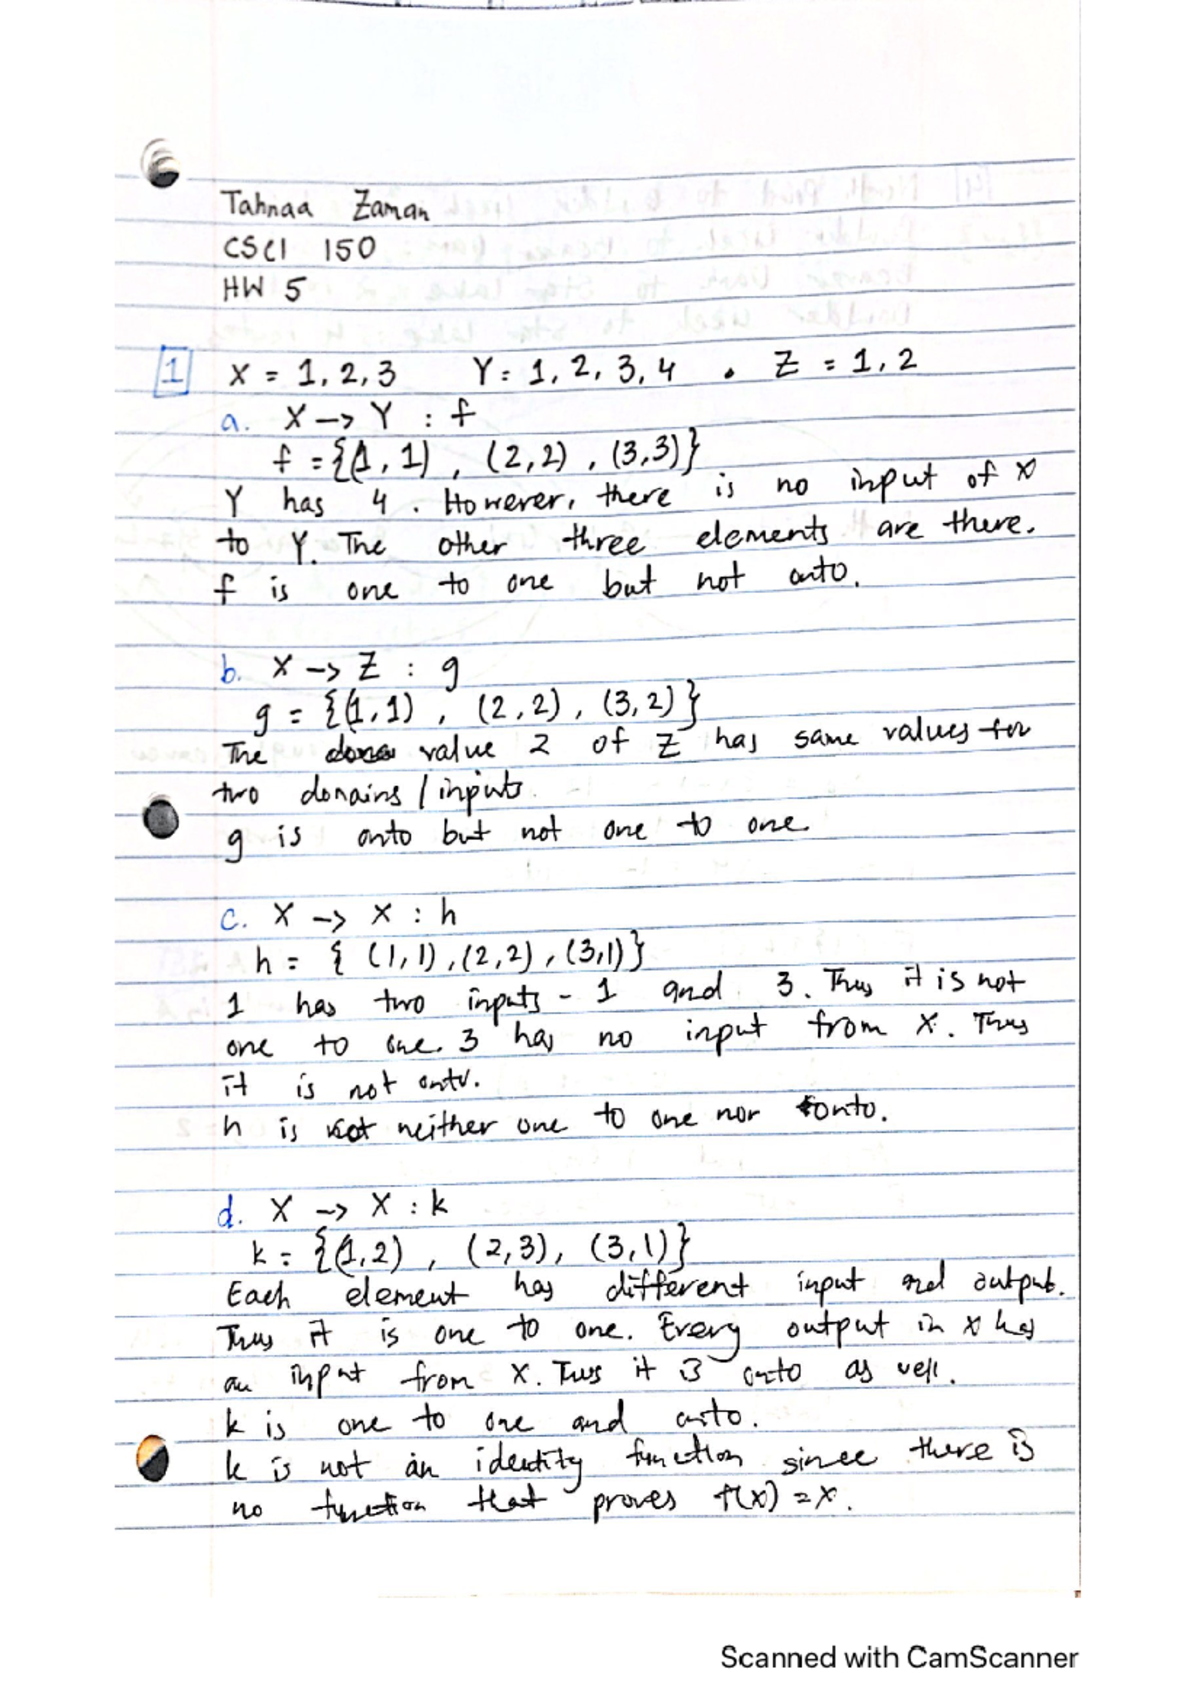 Tahnaa Zaman
CSCI 150
HW 5
1 X = 1, 2, 3 Y = 1, 2, 3, 4 . Z = 1, 2
a. X -> Y : f
f = {(1, 1) , (2,2) , (3,3)}
Y has 4 . However, there is no input of X
to Y. The other three elements are there.
f is one to one but not onto.
b. X -> Z : g
g = {(1,1) , (2,2) , (3,2)}
The value 2 of Z has same values for
two domains / inputs.
g is onto but not one to one.
c. X -> X : h
h = { (1,1) , (2,2) , (3,1)}
1 has two inputs - 1 and 3. Thus it is not
one to one. 3 has no input from X. Thus
it is not onto.
h is neither one to one nor onto.
d. X -> X : k
k = {(1,2) , (2,3), (3,1)}
Each element has different input and output.
Thus it is one to one. Every output in X has
an input from X. Thus it is onto as well.
k is one to one and onto.
k is not an identity function since there is
no function that proves f(x) = x.
Scanned with CamScanner